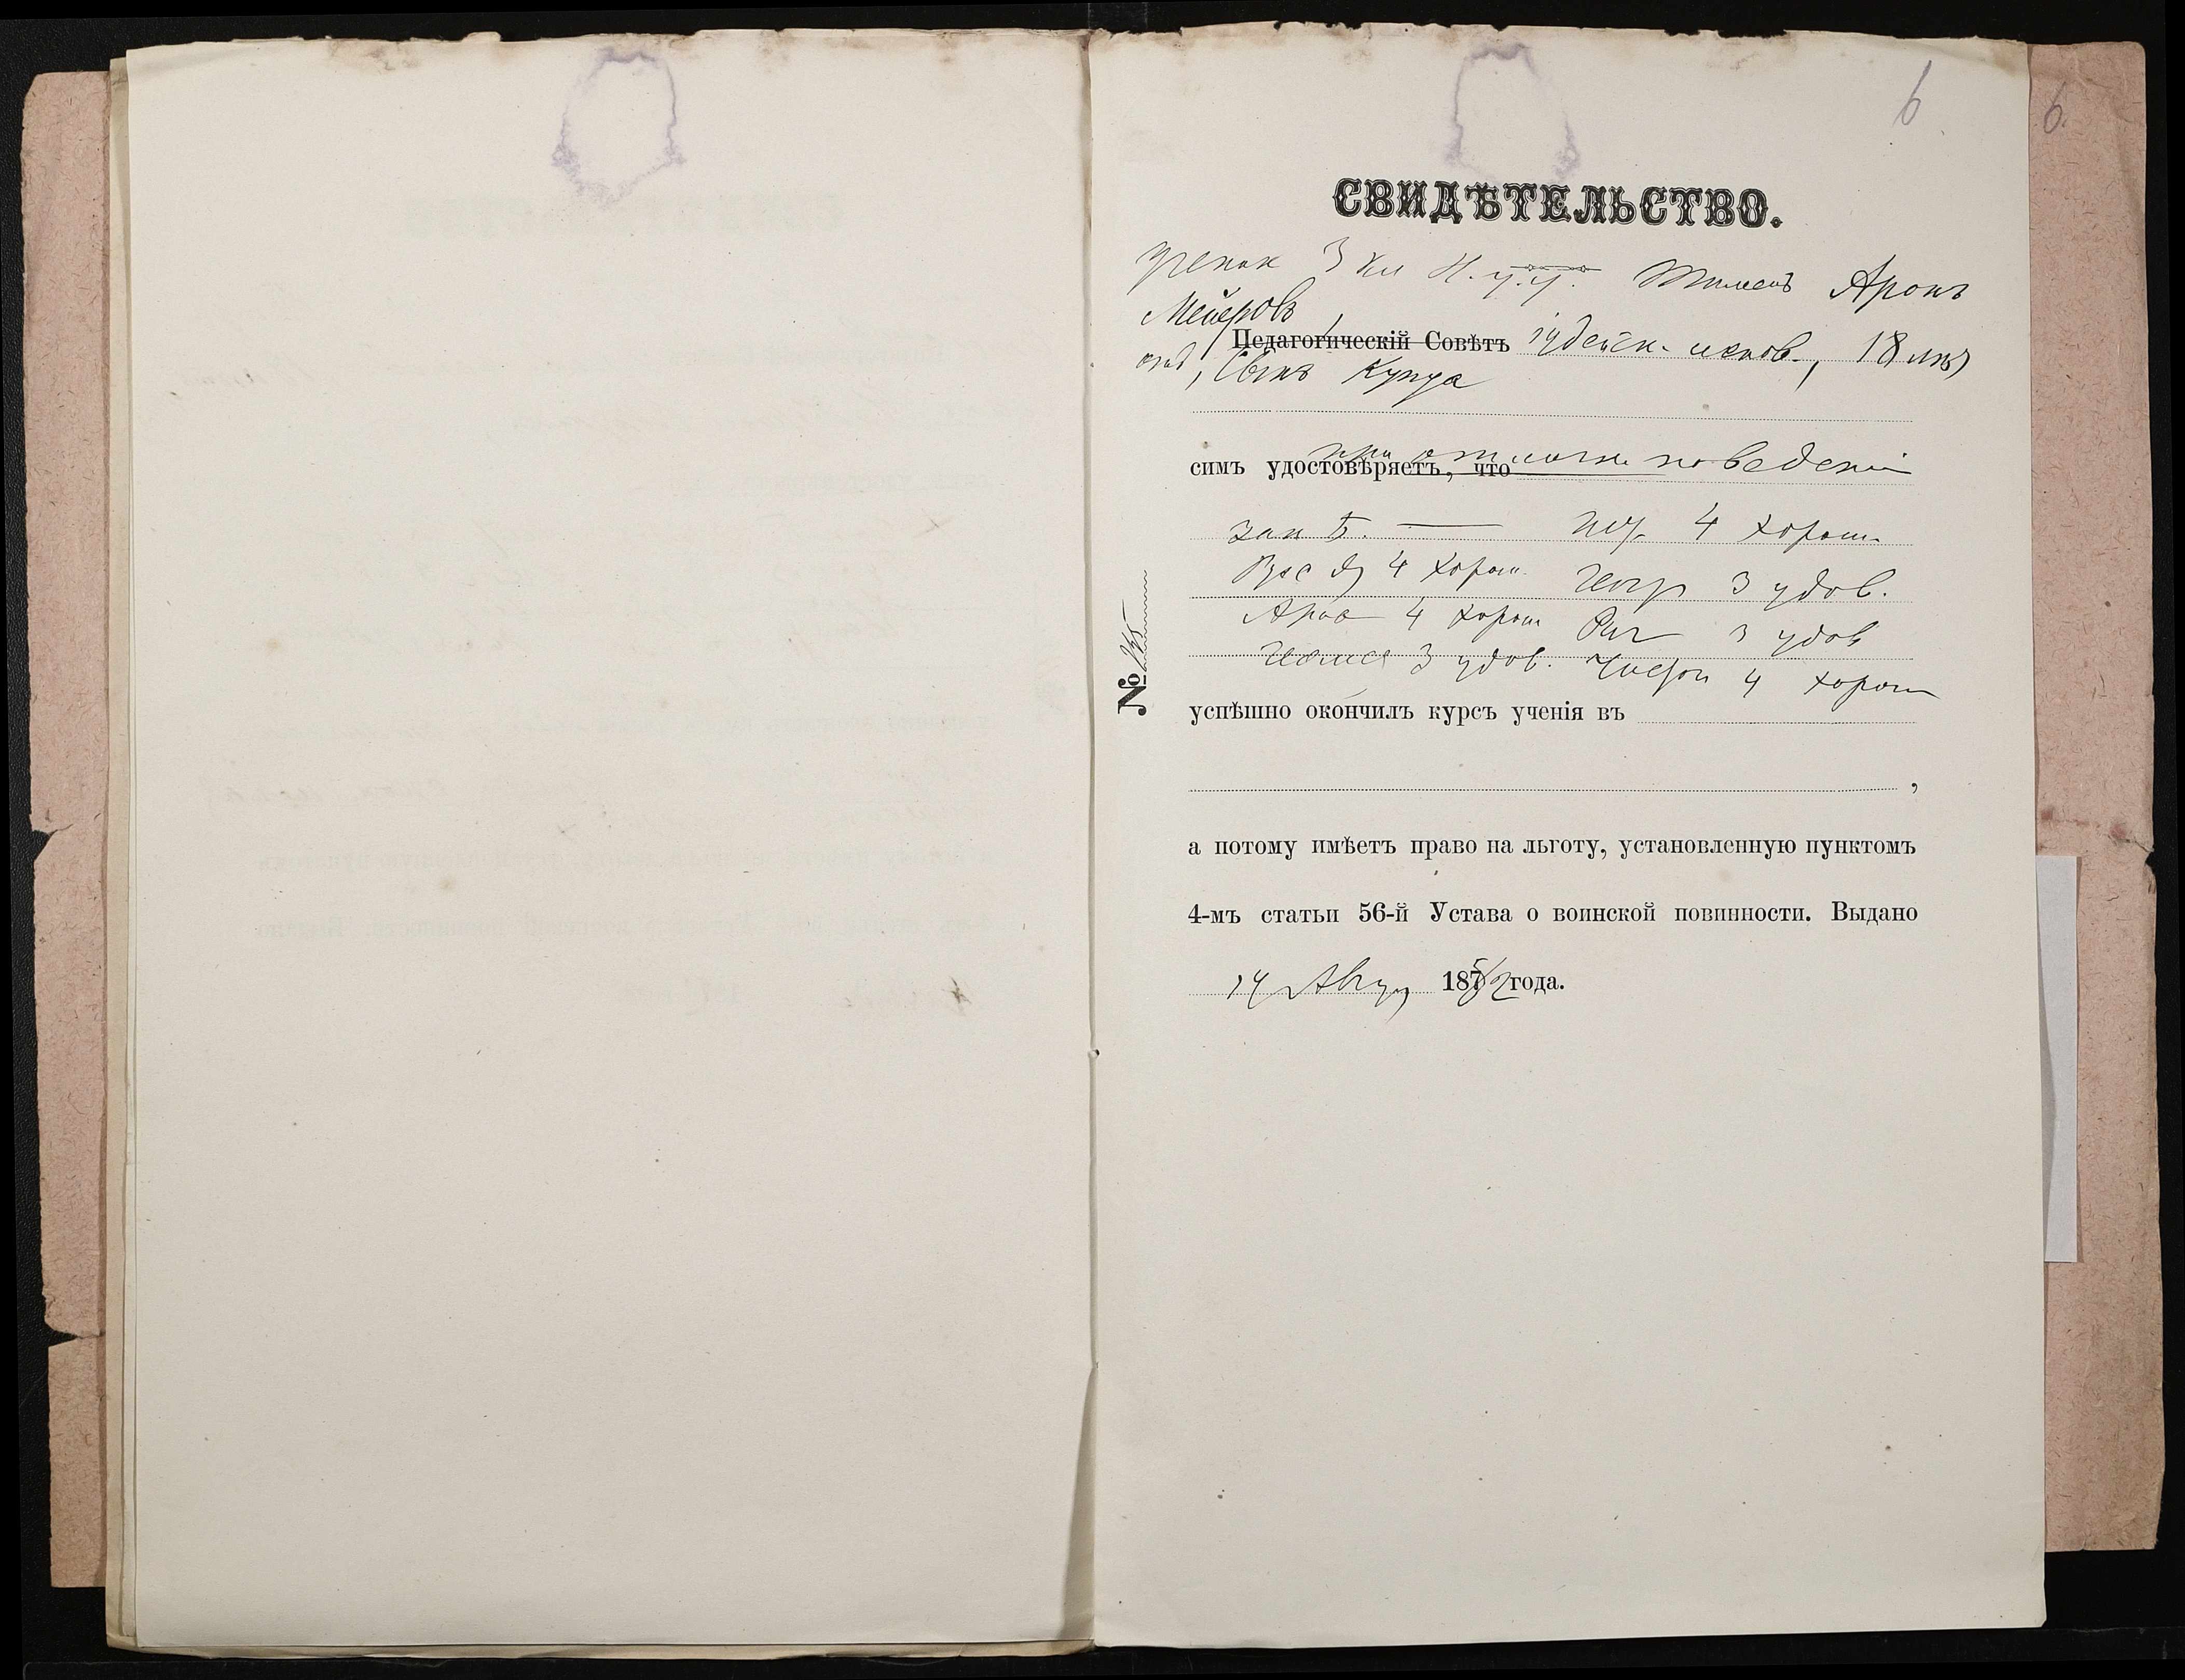 6
6.
СВИДѢТЕЛЬСТВО.
3 кл Аронъ
Мейеровъ
Педагогическій Совѣтъ іудейск. испов., 18 лѣт
сынъ купца
при отличн. поведеніи
симъ удостовѣряетъ, что
Зак Б. — Ист. 4 хорош.
Рус яз 4 хорош. Геогр 3 удов.
Арив 4 хорош Физ 3 удов
3 удов. Чистоп 4 хорош
№
успѣшно окончилъ курсъ ученія въ
,
а потому имѣетъ право на льготу, установленную пунктомъ
4-мъ статьи 56-й Устава о воинской повинности. Выдано
14 Авгу 187 года.